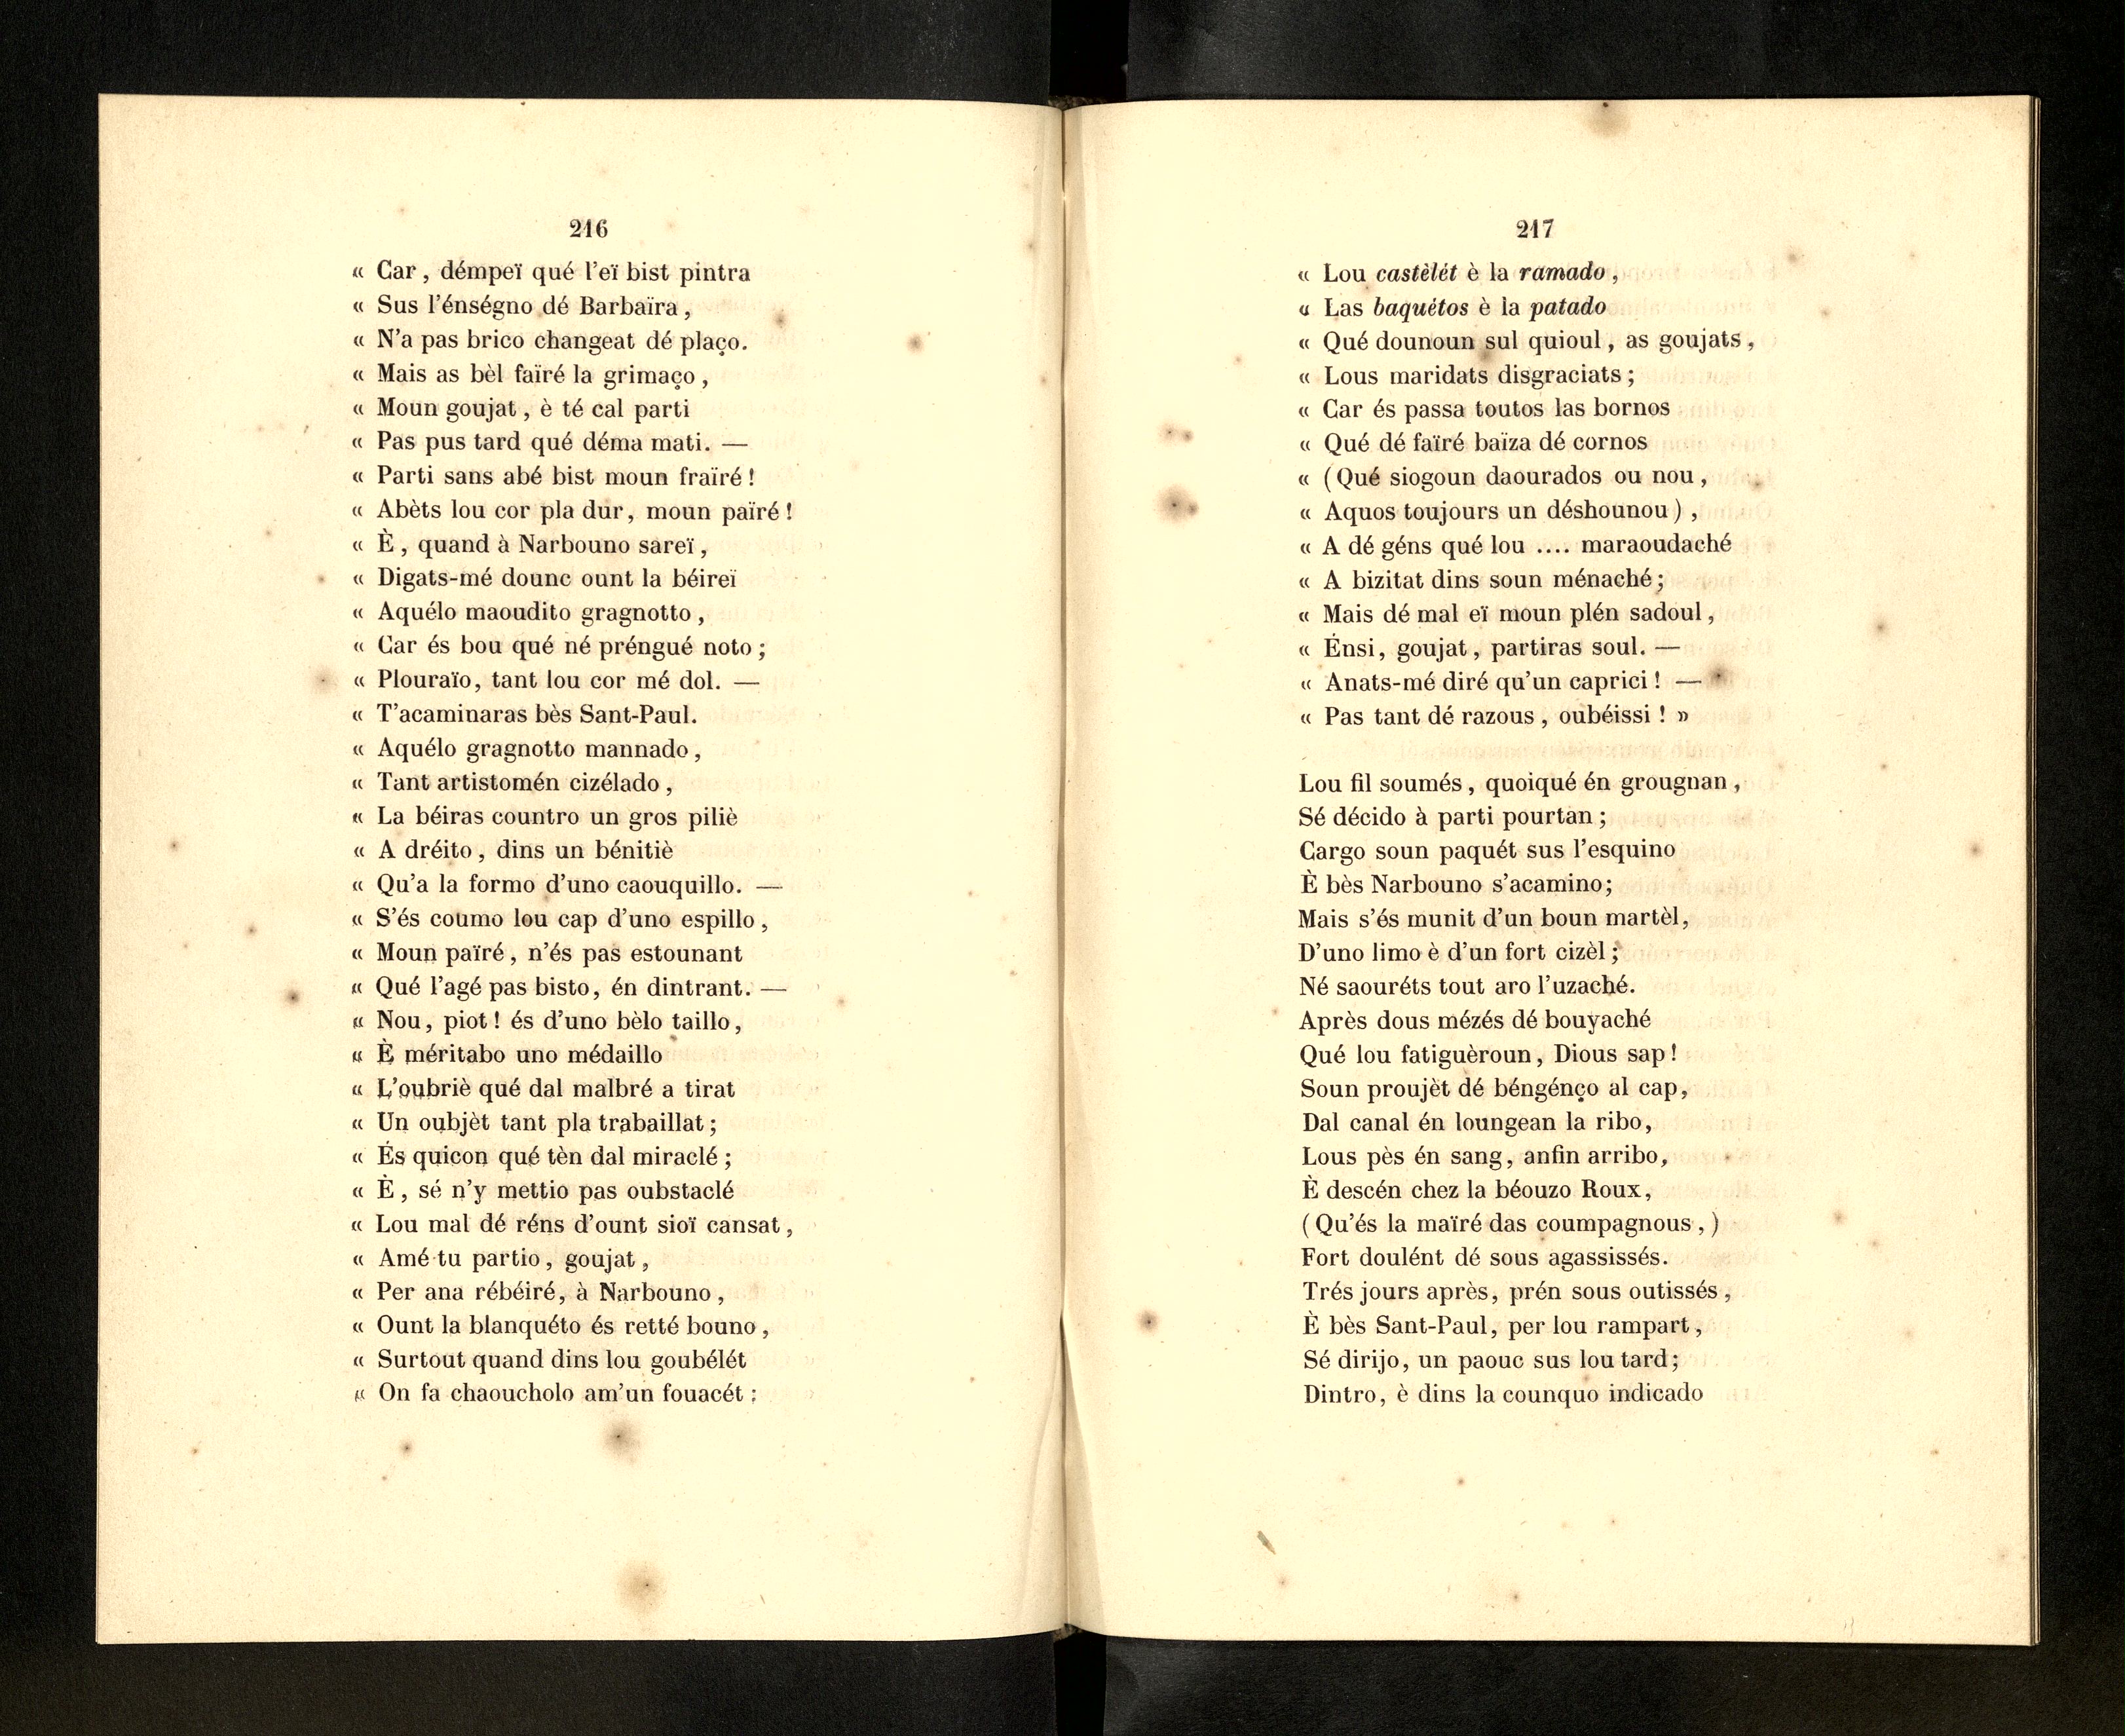 216
« Car, démpeï qué l'eï bist pintra
« Sus l'énségno dé Barbaïra,
« N'a pas brico changeat dé plaço.
« Mais as bèl faïré la grimaço,
« Moun goujat, è té cal parti
« Pas pus tard qué déma mati. —
« Parti sans abé bist moun fraïré !
« Abèts lou cor pla dur, moun païré !
« È, quand à Narbouno sareï,
« Digats-mé dounc ount la béireï
« Aquélo maoudito gragnotto,
« Car és bou qué né préngué noto ;
« Plouraïo, tant lou cor mé dol. —
« T'acaminaras bès Sant-Paul.
« Aquélo gragnotto mannado,
« Tant artistomén cizélado,
« La béiras countro un gros piliè
« A dréito, dins un bénitiè
« Qu'a la formo d'uno caouquillo. —
« S'és coumo lou cap d'uno espillo,
« Moun païré, n'és pas estounant
« Qué l'agé pas bisto, én dintrant. —
« Nou, piot ! és d'uno bèlo taillo,
« È méritabo uno médaillo
« L'oubriè qué dal malbré a tirat
« Un oubjèt tant pla trabaillat ;
« És quicon qué tèn dal miraclé ;
« È, sé n'y mettio pas oubstaclé
« Lou mal dé réns d'ount sioï cansat,
« Amé tu partio, goujat,
« Per ana rébéiré, à Narbouno,
« Ount la blanquéto és retté bouno,
« Surtout quand dins lou goubélét
« On fa chaoucholo am'un fouacét ;
217
« Lou castèlét è la ramado,
« Las baquétos è la patado
« Qué dounoun sul quioul, as goujats,
« Lous maridats disgraciats ;
« Car és passa toutos las bornos
« Qué dé faïré baïza dé cornos
« (Qué siogoun daourados ou nou,
« Aquos toujours un déshounou),
« A dé géns qué lou .... maraoudaché
« A bizitat dins soun ménaché ;
« Mais dé mal eï moun plén sadoul,
« Énsi, goujat, partiras soul. —
« Anats-mé diré qu'un caprici ! —
« Pas tant dé razous, oubéissi ! »
Lou fil soumés, quoiqué én grougnan,
Sé décido à parti pourtan ;
Cargo soun paquét sus l'esquino
È bès Narbouno s'acamino ;
Mais s'és munit d'un boun martèl,
D'uno limo è d'un fort cizèl ;
Né saouréts tout aro l'uzaché.
Après dous mézés dé bouyaché
Qué lou fatiguèroun, Dious sap !
Soun proujèt dé béngénço al cap,
Dal canal én loungean la ribo,
Lous pès én sang, anfin arribo,
È descén chez la béouzo Roux,
(Qu'és la maïré das coumpagnous,)
Fort doulént dé sous agassissés.
Trés jours après, prén sous outissés,
È bès Sant-Paul, per lou rampart,
Sé dirijo, un paouc sus lou tard ;
Dintro, è dins la counquo indicado